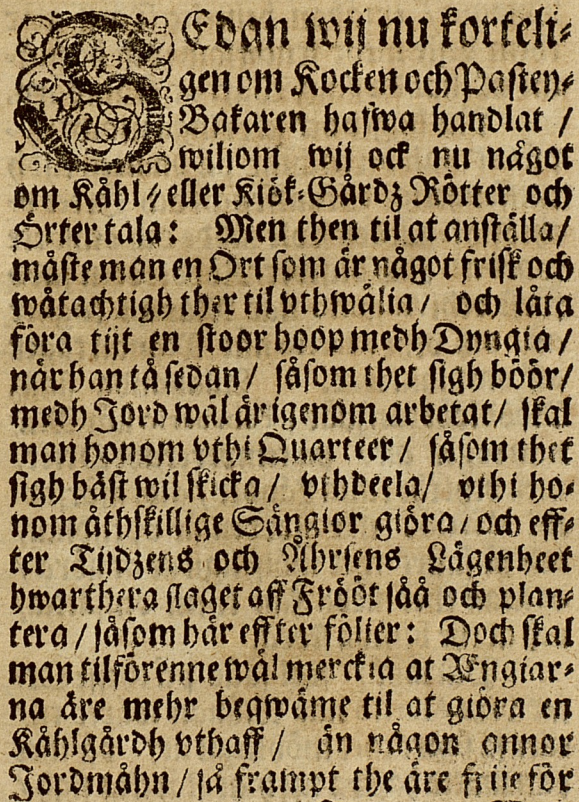 SEdan wij nu korteli⸗
gen om Kocken och Pastey⸗
Bakaren hafwa handlat /
wiliom wij ock nu något
om Kåhl⸗ eller Kiök⸗Gårdz Rötter och
Örter tala: Men then til at anställa /
måste man en Ort som är något frisk och
wåtachtigh ther til vthwälia / och låta
föra tijt en stoor hoop medh Dyngia /
när han tå sedan / såsom thet sigh böör /
medh Jord wäl är igenom arbetat / skal
man honom vthi Quarteer / såsom thet
sigh bäst wil skicka / vthdeela / vthi ho⸗
nom åthskillige Sängior giöra / och eff⸗
ter Tijdzens och Åhrsens Lägenheet
hwarthera slaget aff Frööt såå och plan⸗
tera / såsom här effter fölier: Doch skal
man tilförenne wäl merckia at Ængiar⸗
na äre mehr beqwäme til at giöra en
Kåhlgårdh vthaff / än någon annor
Jordmåhn / så frampt the äre frije för